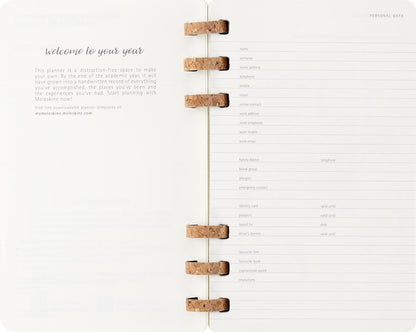 welcome to your year
This planner is a distraction-free space to make
your own. By the end of the academic year, it will
have grown into a handwritten record of everything
you've accomplished, the places you've been and
the experiences you've had. Start planning with
Moleskine now!
Find free downloadable planner templates at
mymoleskine.moleskine.com
PERSONAL DATA
name
surname
home address
telephone
mobile
email
other contact
work address
work telephone
work mobile
work email
family doctor telephone
blood group
allergies
emergency contact
identity card valid until
passport valid until
issued by date
driver's licence valid until
favourite film
favourite book
inspirational quote